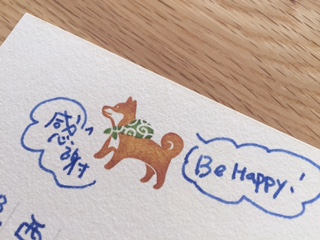 感
謝
Be Happy!
西